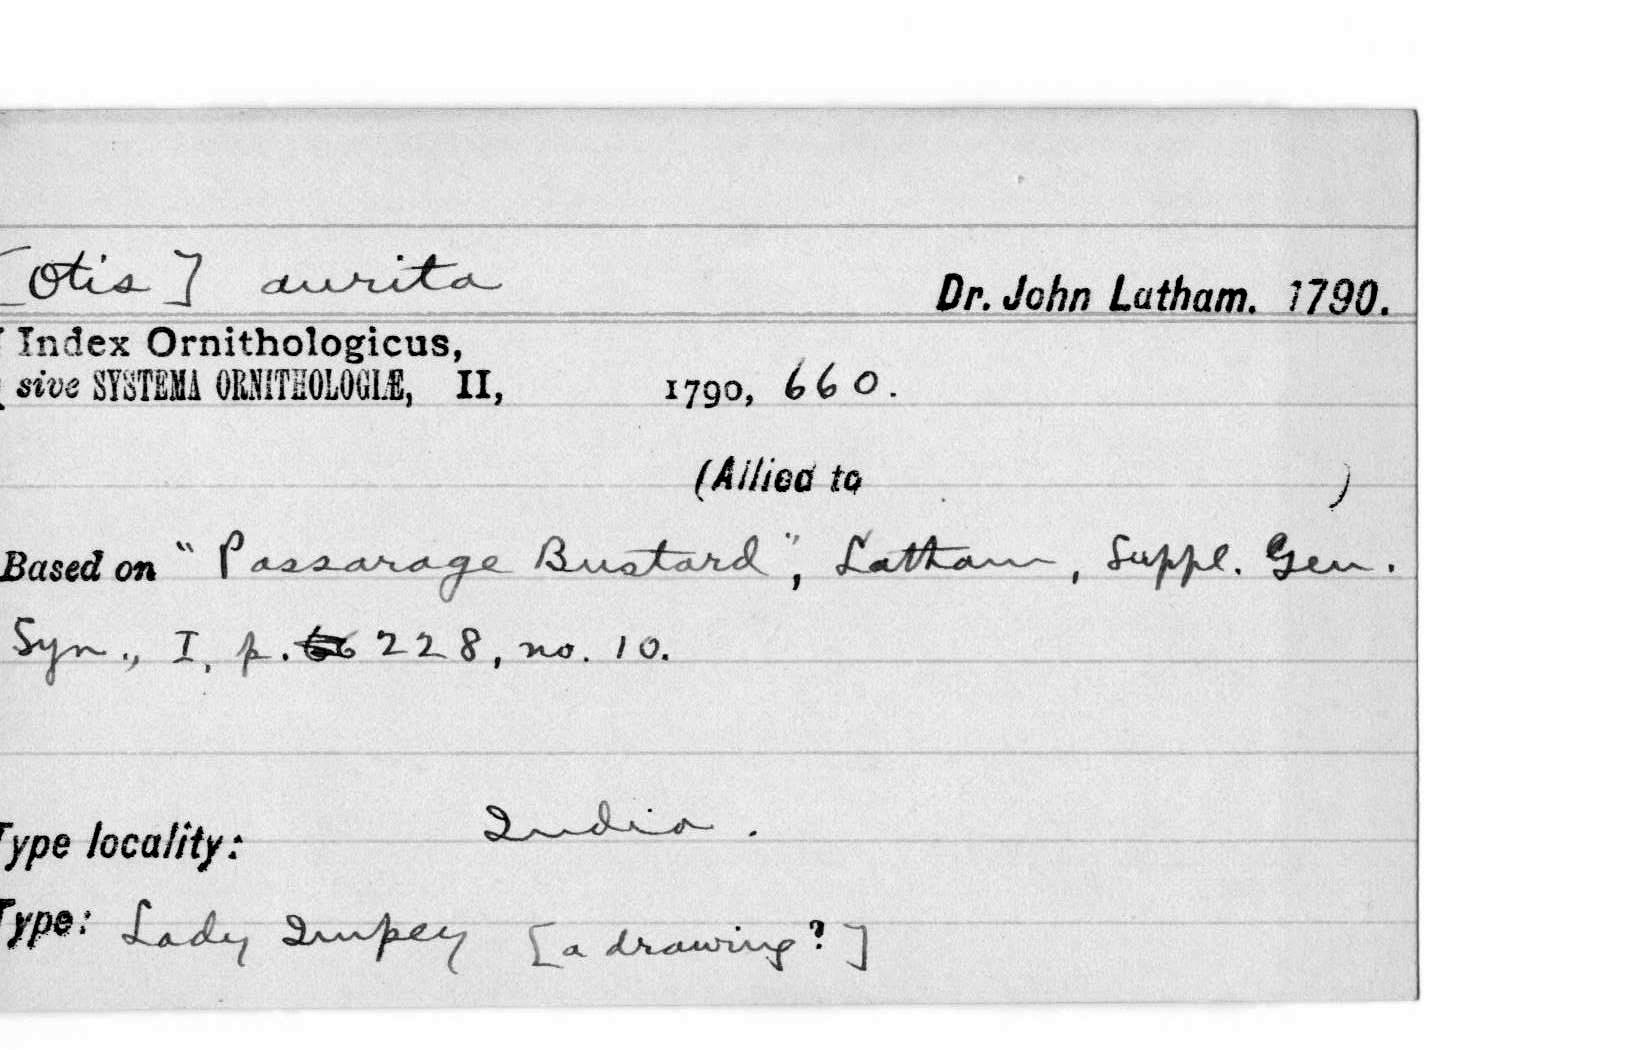 [Otis] aurita
Dr. John Latham. 1790.
Index Ornithologicus,
sive SYSTEMA ORNITHOLOGIÆ, II, 1790, 660.
(Allied to )
Based on "Passarage Bustard", Latham, Suppl. Gen.
Syn., I, p. 228, no. 10.
Type locality: India.
Type: Lady Impey [a drawing?]